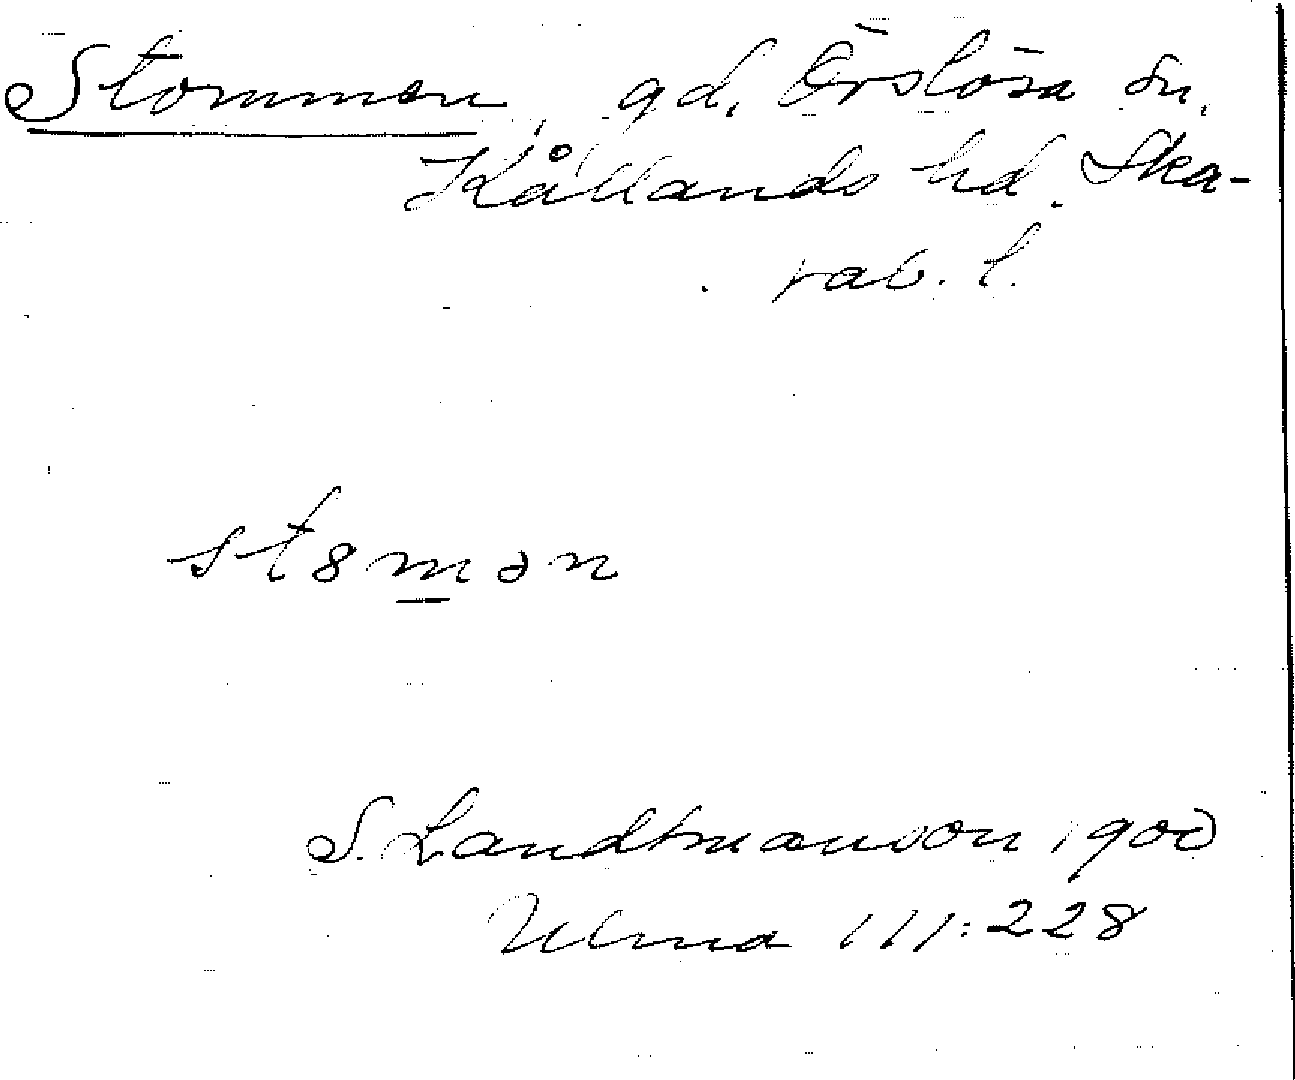 Stommen, gd, Örslösa sn,
Kållands hd. Ska-
rab. l.
st8mən
S. Landtmanson 1900
Ulma 111:228